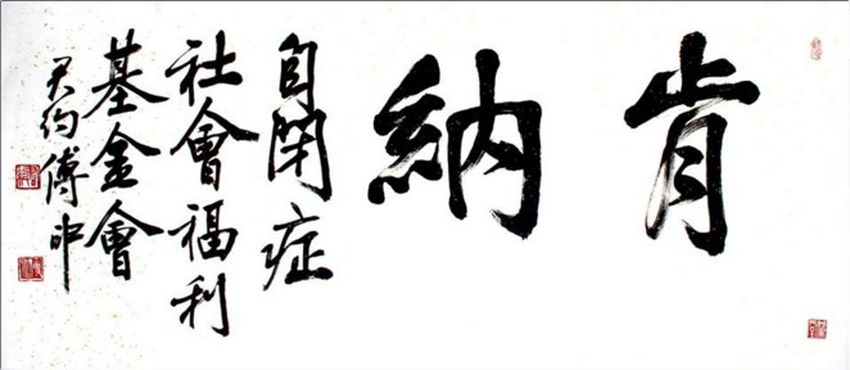 肯納
自閉症
社會福利
基金會
君約傅申